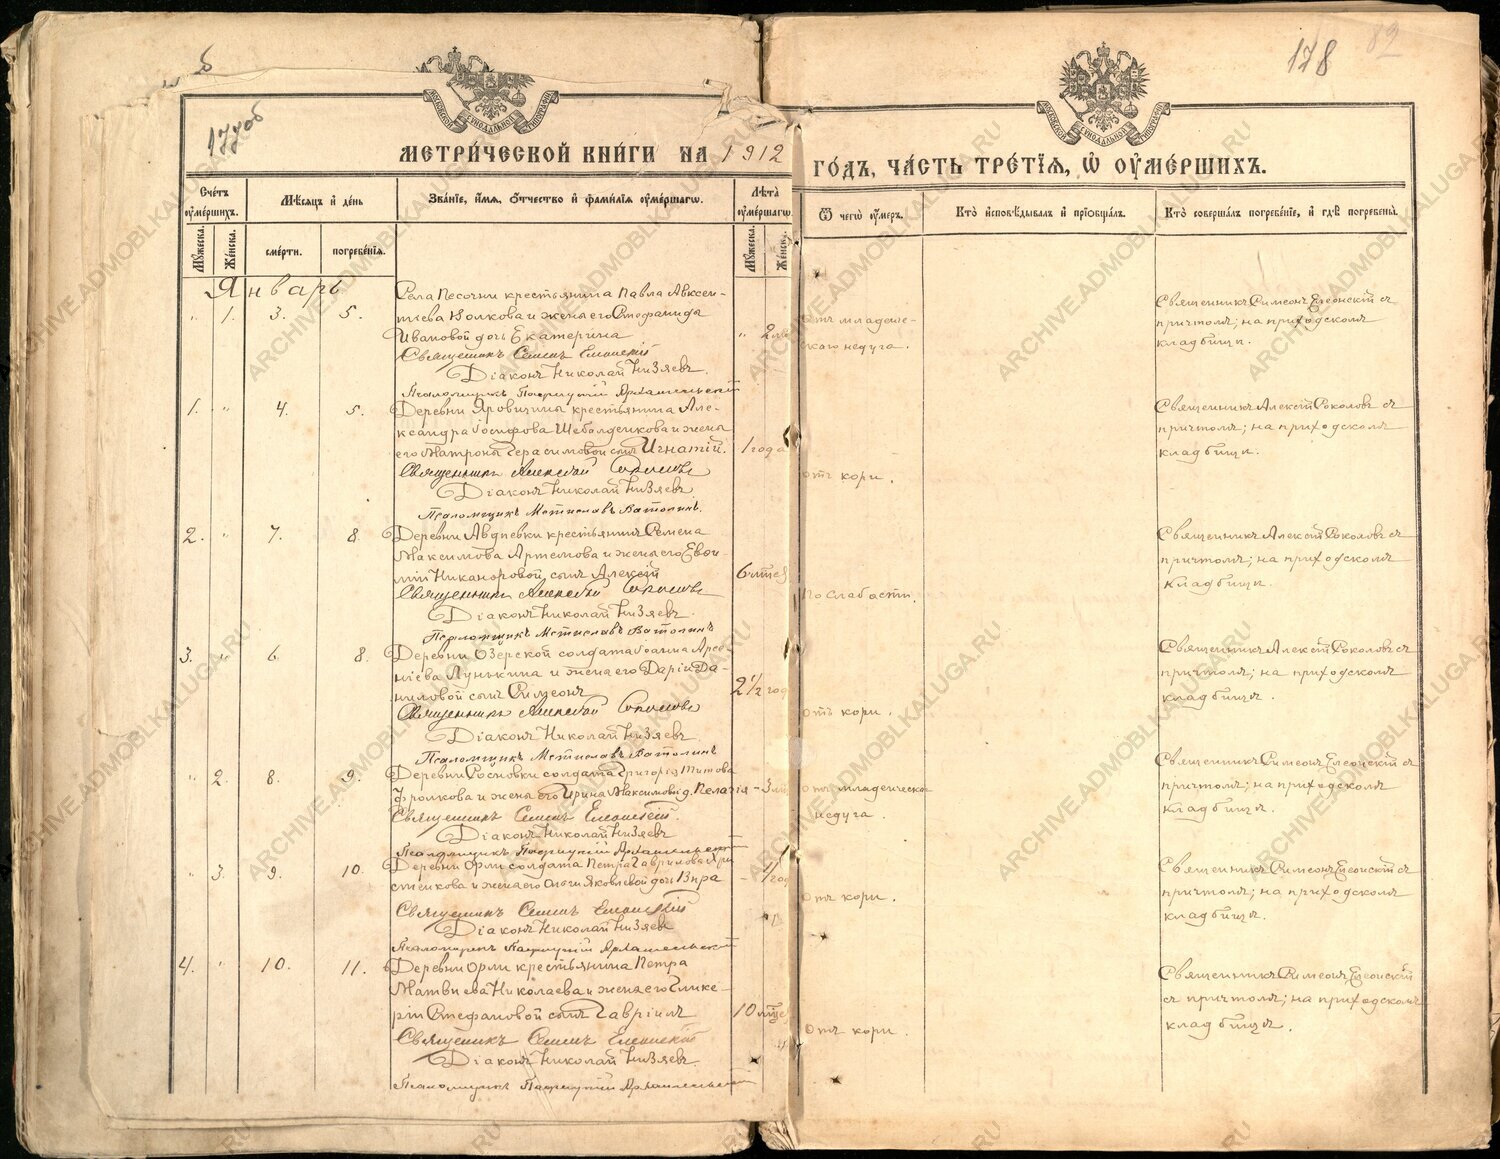 177об
178
82
МОСКОВСКОЙ СѴНОДАЛЬНОЙ ТИПОГРАФІИ
МОСКОВСКОЙ СѴНОДАЛЬНОЙ ТИПОГРАФІИ
МЕТРИ́ЧЕСКОЙ КНИ́ГИ НА 1912 ГО́ДЪ, ЧА́СТЬ ТРЕ́ТІѦ, Ѡ ОУМЕ́РШИХЪ.
Сче́тъ оуме́ршихъ.
Мѣ́сѧцъ и де́нь
Зва́нїе, и́мѧ, о́тчество и фами́лїѧ оуме́ршагѡ.
Лѣта̀ оуме́ршагѡ.
Ѿ чегѡ̀ оу́меръ.
Кто̀ исповѣ́дывалъ и прїѡбща́лъ.
Кто̀ соверша́лъ погребе́нїе, и гдѣ̀ погребены̀.
Мꙋ́жеска.
Же́нска.
сме́рти.
погребе́нїѧ.
Мꙋ́жеска.
Же́нска.
Январь
" 1. 3. 5.
Села Песочни крестьянина Павла Авксен-
тьева Волкова и жены его Стефаниды
Ивановой дочь Екатерина
Священникъ Симеонъ Елеонскій
Діаконъ Николай Низяевъ.
Псаломщикъ Патрицій Архангельскій
" 2
отъ младенче-
скаго недуга.
Священникъ Симеонъ Елеонскій съ
причтомъ; на приходскомъ
кладбищѣ.
1. " 4. 5.
Деревни Яровщины крестьянина Але-
ксандра Іосифова Шеболденкова и жены
его Матроны Герасимовой сынъ Игнатій.
Священникъ Алексѣй Соколовъ
Діаконъ Николай Низяевъ
Псаломщикъ Мстиславъ Ватолинъ.
1 года
отъ кори.
Священникъ Алексѣй Соколовъ съ
причтомъ; на приходскомъ
кладбищѣ.
2. " 7. 8.
Деревни Авдѣевки крестьянина Семена
Максимова Артемова и жены его Евѳи-
міи Никаноровой, сынъ Алексѣй
Священникъ Алексѣй Соколовъ
Діаконъ Николай Низяевъ.
Псаломщикъ Мстиславъ Ватолинъ
6 мѣсяц
по слабости.
Священникъ Алексѣй Соколовъ съ
причтомъ; на приходскомъ
кладбищѣ.
3. " 6. 8.
Деревни Озерской солдата Іоанна Арсе-
ніева Лунькина и жены его Даріи Да-
ниловой сынъ Симеонъ
Священникъ Алексѣй Соколовъ
Діаконъ Николай Низяевъ.
Псаломщикъ Мстиславъ Ватолинъ
2 1/2 год
отъ кори.
Священникъ Алексѣй Соколовъ съ
причтомъ; на приходскомъ
кладбищѣ.
" 2. 8. 9.
Деревни Сосновки солдата Григорія Титова
Фролкова и жены его Ирины Максимовой д. Пелагія
Священникъ Симеонъ Елеонскій.
Діаконъ Николай Низяевъ
Псаломщикъ Патрицій Архангельскій
- 3
отъ младенческ
недуга.
Священникъ Симеонъ Елеонскій съ
причтомъ; на приходскомъ
кладбищѣ.
" 3. 9. 10.
Деревни Орли солдата Петра Гаврилова
и жены его Ольги Яковлевой дочь Вѣра
Священникъ Симеонъ Елеонскій
Діаконъ Николай Низяевъ
Псаломщикъ Патрицій Архангельскій
Отъ кори.
Священникъ Симеонъ Елеонскій съ
причтомъ; на приходскомъ
кладбищѣ.
4. " 10. 11.
Деревни Орли крестьянина Петра
Матвѣева Николаева и жены его Глике-
ріи Стефановой сынъ Гавріилъ
Священникъ Симеонъ Елеонскій
Діаконъ Николай Низяевъ.
Псаломщикъ Патрицій Архангельскій
10 мѣсяц
Отъ кори.
Священникъ Симеонъ Елеонскій
съ причтомъ; на приходскомъ
кладбищѣ.
ARCHIVE.ADMOBLKALUGA.RU